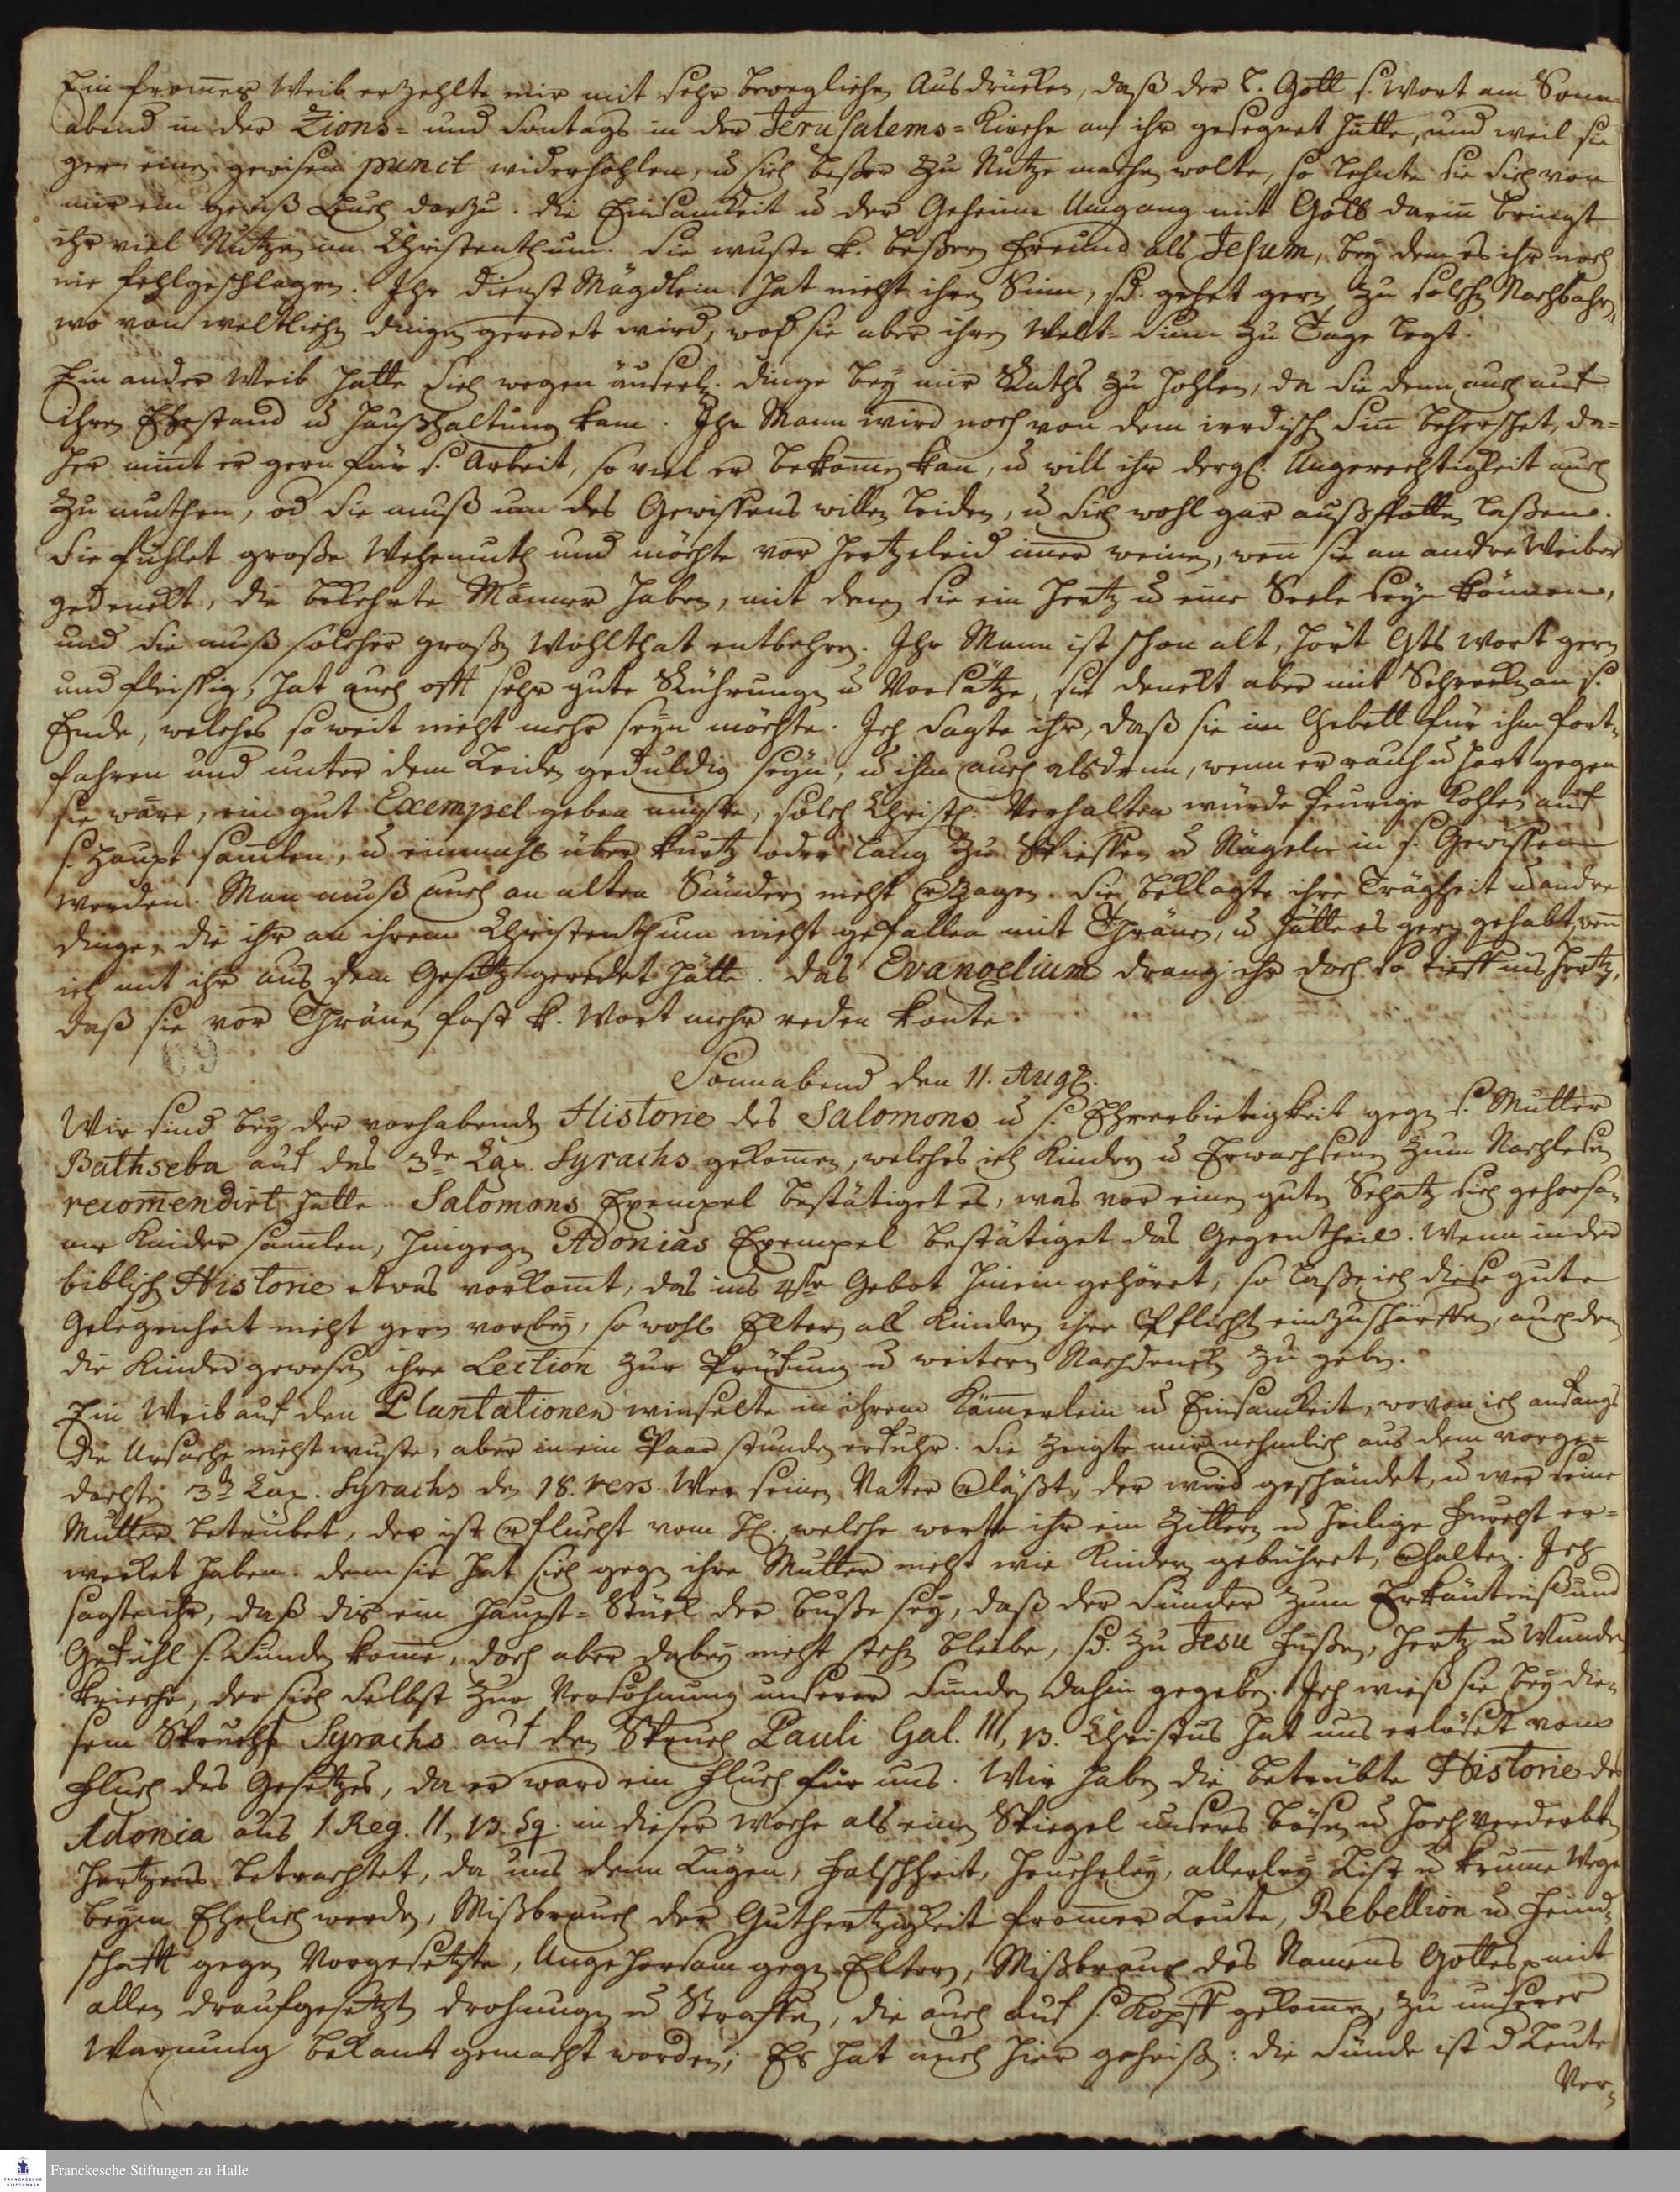 Ein from̅es Weib erzehlte mir mit sehr beweglichen Ausdrücken, daß der l. Gott s. Wort am Sonn-
abend in der Zions- und Sontags in der Jerusalems-Kirche an ihr gesegnet hätte, und weil sie
gern einen gewisen punct widerhohlen, u sich beßer zu Nutze machen wolte, so lehnte sie sich von
mir ein gewiß Buch darzu. die Einsamkeit u der Geheime Umgang mit Gott darin̅ bringt
ihr viel Nutzen im Christenthum. Sie wuste k. beßern Freund als Jesum, bey dem es ihr noch
nie fehlgeschlagen. Ihr dienst Mägdlein hat nicht ihren Sinn, sd. gehet gern zu solchen Nachbahrn,
wo von weltlichen dingen geredet wird, wo sie aber ihren Welt-Sinn zu Tage legt.
Ein ander Weib hatte sich wegen äuserl. dinge bey mir Raths zu hohlen, da sie denn auch auf
ihren Ehestand u Haußhaltung kam. Ihr Mann wird noch von dem irrdisch Sin̅ beherschet, da-
her nim̅t er gern für s. Arbeit, so viel er bekom̅en kan, u will ihr dergl. Ungerechtigkeit auch
zu muthen, od sie muß um des Gewissens willen leiden, u sich wohl gar außspotten laßen.
Sie fühlet große Wehemuth und möchte vor Hertzeleid im̅er weinen, wen̅ sie an andre Weiber
gedenckt, die bekehrte Männer haben, mit denen sie ein Hertz u eine Seele seyn können,
und sie muß solcher großen Wohlthat entbehren. Ihr Mann ist schon alt, hört Gts Wort gern
und fleissig, hat auch offt sehr gute Rührungen u Vorsätze, sie denckt aber mit Schrecken an s.
Ende, welches so weit nicht mehr seyn möchte. Ich sagte ihr, daß sie im Gebett für ihn fort-
fahren und unter dem Leiden geduldig seyn, u ihm auch alsdenn, wenn er rauh u hart gegen
sie wäre, ein gut Exempel geben müste, solch Christl. Verhalten würde feurige Kohlen auf
s. Haupt sam̅len, u einmahl über kurtz oder lang zu Spiessen u Nägeln in s. Gewissen
werden. Man muß auch an alten Sündern nicht verzagen. Sie beklagte ihre Trägheit u andre
dinge, die ihr an ihrem Christenthum nicht gefallen mit Thränen, u hätte es gern gehabt, wen̅
ich mit ihr aus dem Gesetz geredet hätte. das Evangelium drang ihr doch so tieff ins Hertz,
daß sie vor Thränen fast k. Wort mehr reden konte.
69
Sonnabend den 11. Aug.
Wir sind bey der vorhabenden Historie des Salomons u s. Ehrerbietigkeit gegen s. Mutter
Bathseba auf das 3te Cap. Syrachs gekom̅en, welches ich Kindern u Erwachsenen zum Nachlesen
recom̅endirt hatte. Salomons Exempel bestätiget es, was vor einen guten Schatz sich gehorsa-
me Kinder sam̅len, hingegen Adonias Exempel bestätiget das Gegentheil. Wenn in der
biblisch Historie etwas vorkom̅t, das ins 4te Gebot hinein gehöret, so laße ich diese gute
Gelegenheit nicht gern vorbey, so wohl Eltern als Kindern ihre Pflicht einzuschärffen, auch den
die Kinder gewesen ihre Lection zur Prüfung u weitern Nachdencken zu geben.
Ein Weib auf den Plantationen winselte in ihrem Käm̅erlein u Einsamkeit, wovon ich anfangs
die Ursache nicht wuste, aber in ein Paar stunden erfuhr. Sie zeigte mir nehmlich aus dem vorge-
dachten 3ten Cap. Syrachs den 18. vers. Wer seinen Vater verläßt, der wird geschändet, u wer seine
Mutter betrübet, der ist verflucht vom H., welche worte ihr ein Zittern u heilige Furcht er-
wecket haben. denn sie hat sich gegen ihre Mutter nicht wie Kindern gebühret, verhalten. Ich
sagte ihr, daß dis ein Haupt-Stück der Buße sey, daß der Sünder zum Erkäntniß und
Gefühl s. Sünden kom̅e, doch aber dabey nicht stehn bleibe, sd. zu Jesu Füßen, Hertz u Wunden
krieche, der sich selbst zur Versöhnung unserer Sünden dahin gegeben. Ich wieß sie bey die-
sem Spruche Syrachs auf den Spruch Pauli Gal. III, 13. Christus hat uns erlöset vom
Fluch des Gesetzes, da er ward ein Fluch für uns. Wir haben die betrübte Historie des
Adonia aus 1. Reg. II, 13. sq. in dieser Woche als einen Spiegel unsers bösen u hochverderbten
Hertzens betrachtet, da uns denn Lügen, Falschheit, Heucheley, allerley List u krum̅e Wege
beym Ehelich werden, Mißbrauch der Guthertzigkeit from̅er Leute, Rebellion u Feind-
schafft gegen Vorgesetzte, Ungehorsam gegen Eltern, Mißbrauch des Namens Gottes p mit
allen draufgesetzten drohungen u Straffen, die auch auf s. Kopff gekom̅en, zu unserer
Warnung bekant gemacht worden; Es hat auch hier geheißen: die Sünde ist d Leute
Ver-
Franckesche Stiftungen zu Halle